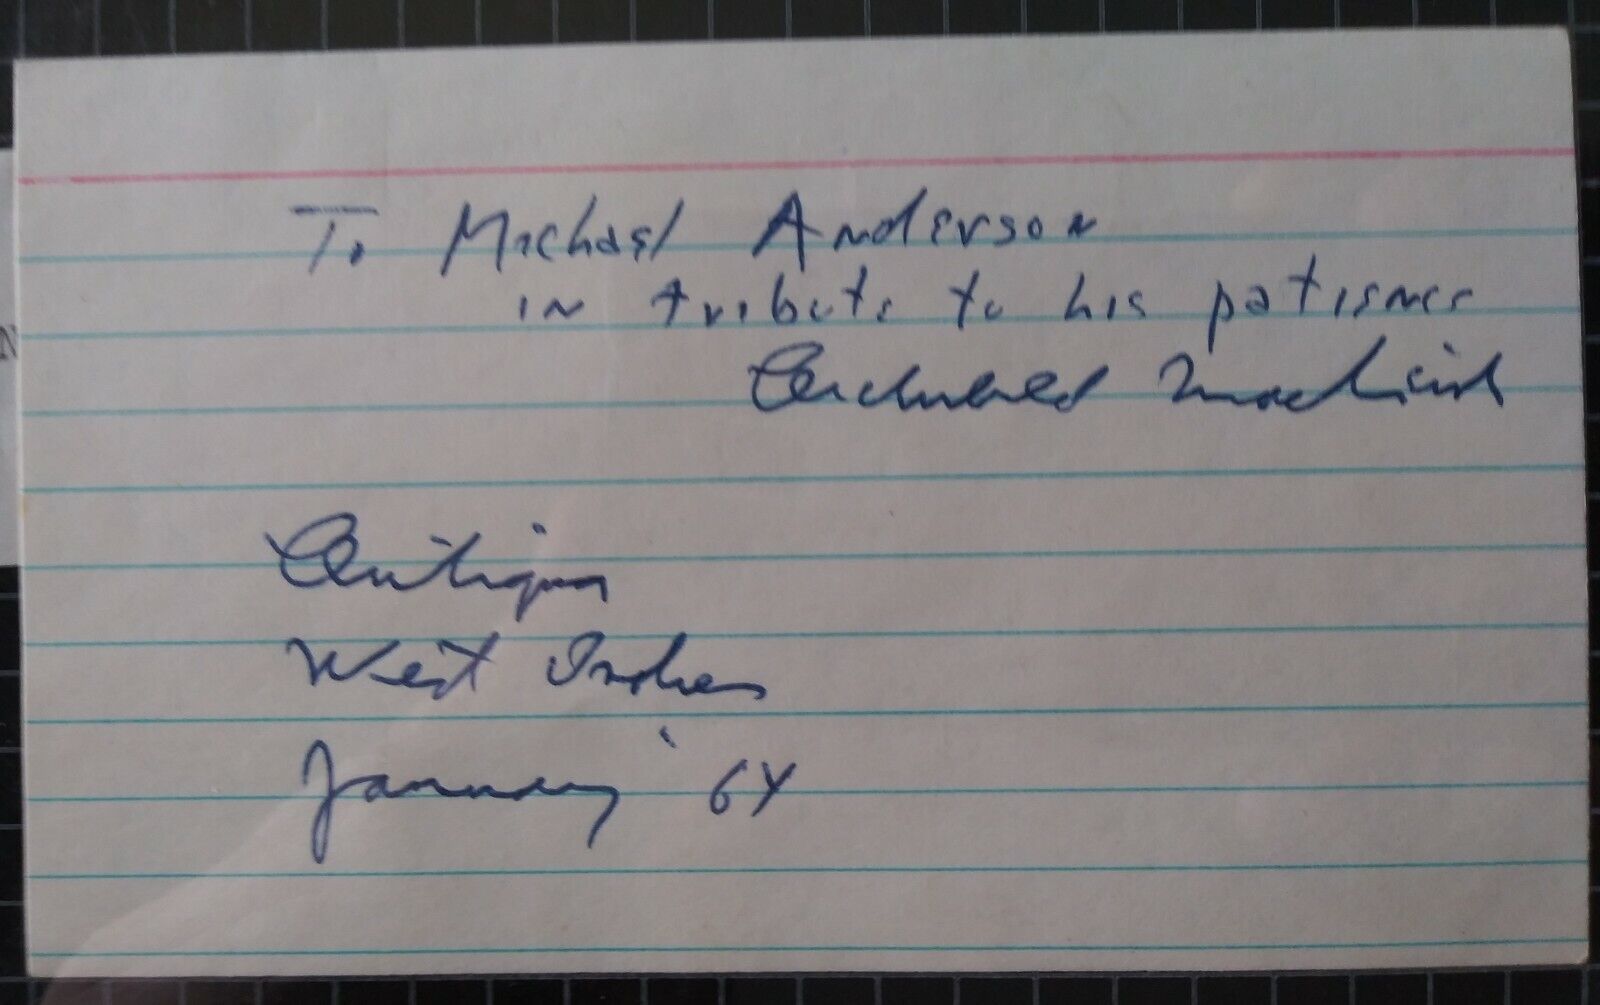 To Michael Anderson
in tribute to his patience
Archibald MacLeish
Antigua
West Indies
January '64
N